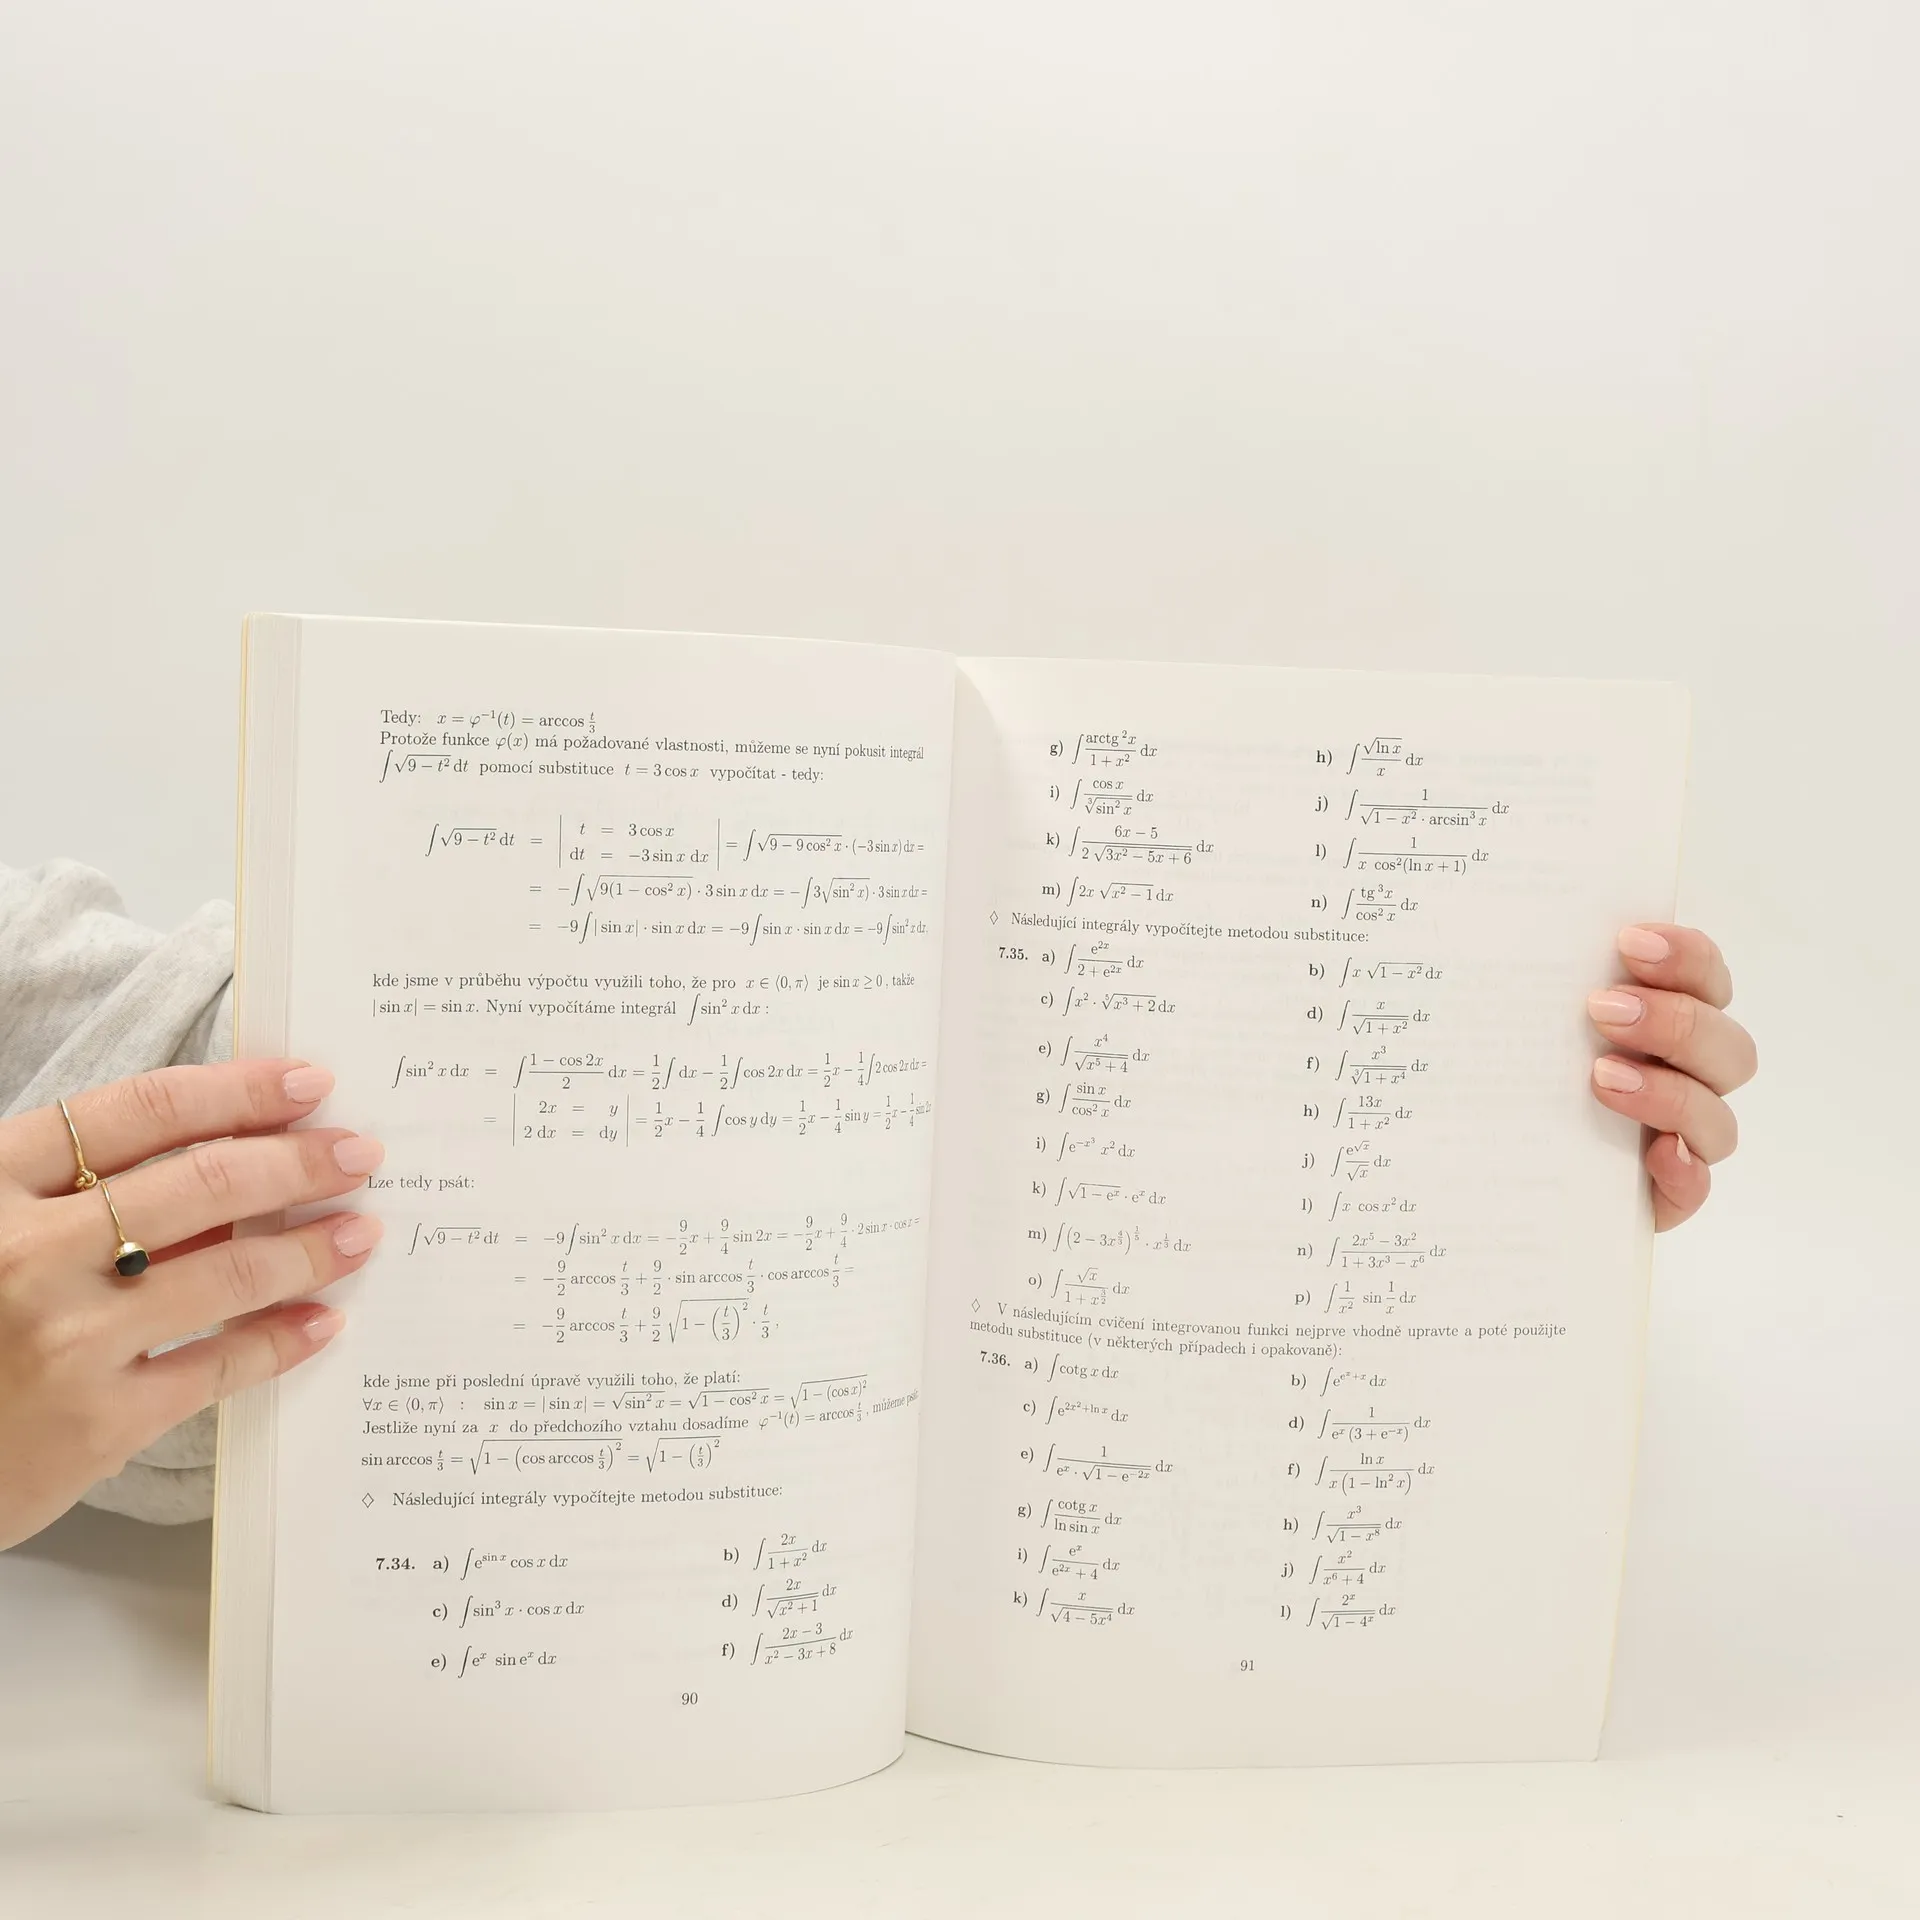 Tedy: x = φ⁻¹(t) = arccos t/3
Protože funkce φ(x) má požadované vlastnosti, můžeme se nyní pokusit integrál
∫√(9 − t²) dt pomocí substituce t = 3 cos x vypočítat - tedy:
∫√(9 − t²) dt = | t = 3 cos x; dt = −3 sin x dx | = ∫√(9 − 9 cos² x) · (−3 sin x) dx =
= −∫√(9(1 − cos² x)) · 3 sin x dx = −∫3√(sin² x) · 3 sin x dx =
= −9∫| sin x| · sin x dx = −9∫sin x · sin x dx = −9∫sin² x dx,
kde jsme v průběhu výpočtu využili toho, že pro x ∈ ⟨0, π⟩ je sin x ≥ 0, takže
| sin x| = sin x. Nyní vypočítáme integrál ∫sin² x dx :
∫sin² x dx = ∫(1 − cos 2x)/2 dx = 1/2∫dx − 1/2∫cos 2x dx = 1/2x − 1/4∫2 cos 2x dx =
= | 2x = y; 2 dx = dy | = 1/2x − 1/4∫cos y dy = 1/2x − 1/4 sin y = 1/2x − 1/4 sin 2x
Lze tedy psát:
∫√(9 − t²) dt = −9∫sin² x dx = −9/2x + 9/4 sin 2x = −9/2x + 9/4 · 2 sin x · cos x =
= −9/2 arccos t/3 + 9/2 · sin arccos t/3 · cos arccos t/3 =
= −9/2 arccos t/3 + 9/2 √(1 − (t/3)²) · t/3 ,
kde jsme při poslední úpravě využili toho, že platí:
∀x ∈ ⟨0, π⟩ : sin x = | sin x| = √(sin² x) = √(1 − cos² x) = √(1 − (cos x)²)
Jestliže nyní za x do předchozího vztahu dosadíme φ⁻¹(t) = arccos t/3 , můžeme psát:
sin arccos t/3 = √(1 − (cos arccos t/3)²) = √(1 − (t/3)²)
◊ Následující integrály vypočítejte metodou substituce:
7.34. a) ∫e^(sin x) cos x dx b) ∫2x/(1 + x²) dx
c) ∫sin³ x · cos x dx d) ∫2x/√(x² + 1) dx
e) ∫eˣ sin eˣ dx f) ∫(2x − 3)/(x² − 3x + 8) dx
90
g) ∫arctg ²x/(1 + x²) dx h) ∫√(ln x)/x dx
i) ∫cos x/∛(sin² x) dx j) ∫1/(√(1 − x²) · arcsin³ x) dx
k) ∫(6x − 5)/(2 √(3x² − 5x + 6)) dx l) ∫1/(x cos²(ln x + 1)) dx
m) ∫2x √(x² − 1) dx n) ∫tg ³x/cos² x dx
◊ Následující integrály vypočítejte metodou substituce:
7.35. a) ∫e²ˣ/(2 + e²ˣ) dx b) ∫x √(1 − x²) dx
c) ∫x² · ⁵√(x³ + 2) dx d) ∫x/√(1 + x²) dx
e) ∫x⁴/√(x⁵ + 4) dx f) ∫x³/∛(1 + x⁴) dx
g) ∫sin x/cos² x dx h) ∫13x/(1 + x²) dx
i) ∫e^(−x³) x² dx j) ∫e^(√x)/√x dx
k) ∫√(1 − eˣ) · eˣ dx l) ∫x cos x² dx
m) ∫(2 − 3x^(4/3))^(1/5) · x^(1/3) dx n) ∫(2x⁵ − 3x²)/(1 + 3x³ − x⁶) dx
o) ∫√x/(1 + x^(3/2)) dx p) ∫1/x² sin 1/x dx
◊ V následujícím cvičení integrovanou funkci nejprve vhodně upravte a poté použijte
metodu substituce (v některých případech i opakovaně):
7.36. a) ∫cotg x dx b) ∫e^(eˣ+x) dx
c) ∫e^(2x²+ln x) dx d) ∫1/(eˣ (3 + e⁻ˣ)) dx
e) ∫1/(eˣ · √(1 − e⁻²ˣ)) dx f) ∫ln x/(x (1 − ln² x)) dx
g) ∫cotg x/ln sin x dx h) ∫x³/√(1 − x⁸) dx
i) ∫eˣ/(e²ˣ + 4) dx j) ∫x²/(x⁶ + 4) dx
k) ∫x/√(4 − 5x⁴) dx l) ∫2ˣ/√(1 − 4ˣ) dx
91